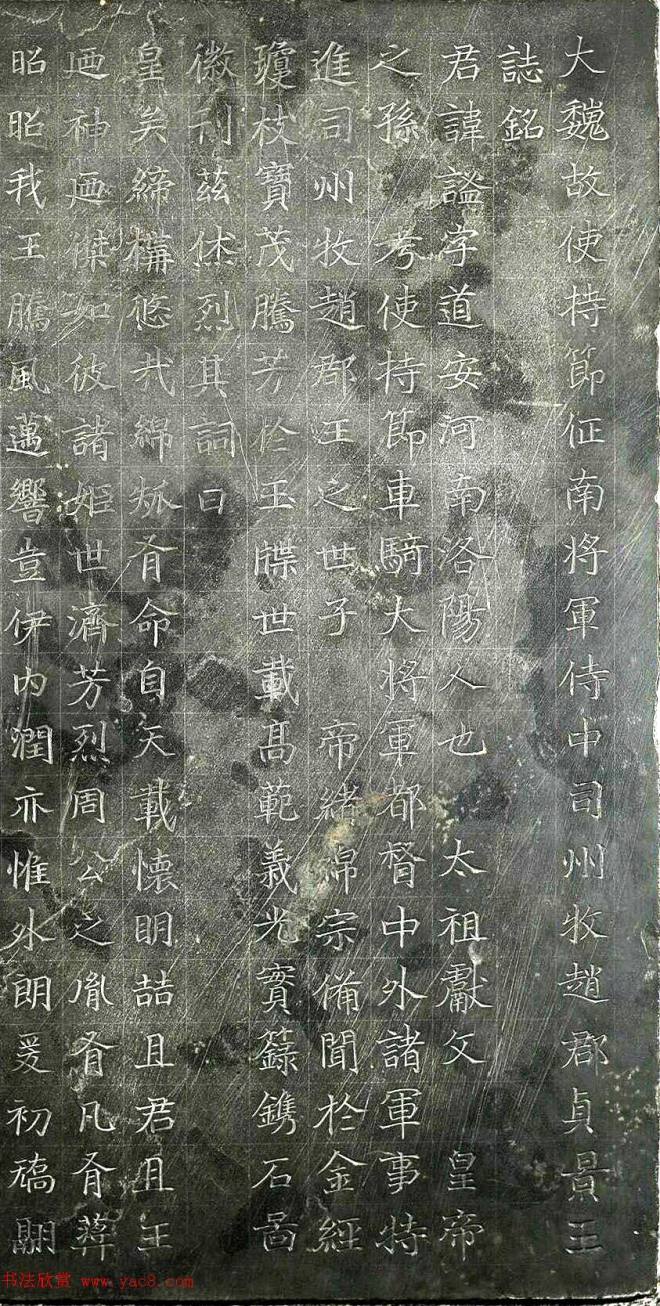 大魏故使持節征南將軍侍中司州牧趙郡貞景王
誌銘
君諱謐字道安河南洛陽人也 太祖獻文 皇帝
之孫 考使持節車騎大將軍都督中外諸軍事特
進司州牧趙郡王之世子 帝緒綿宗備聞於金經
瓊枝寶茂騰芳於玉牒世載高範義光實籙鐫石啚
徽刊茲烋烈其詞曰
皇矣締構悠哉綿邈有命自天載懷明喆且君且王
迺神迺傑如彼諸姬世濟芳烈周公之胤有凡有蔣
昭昭我王騰風邁響豈伊內潤亦惟外朗爰初矯翩
书法欣赏 www.yac8.com